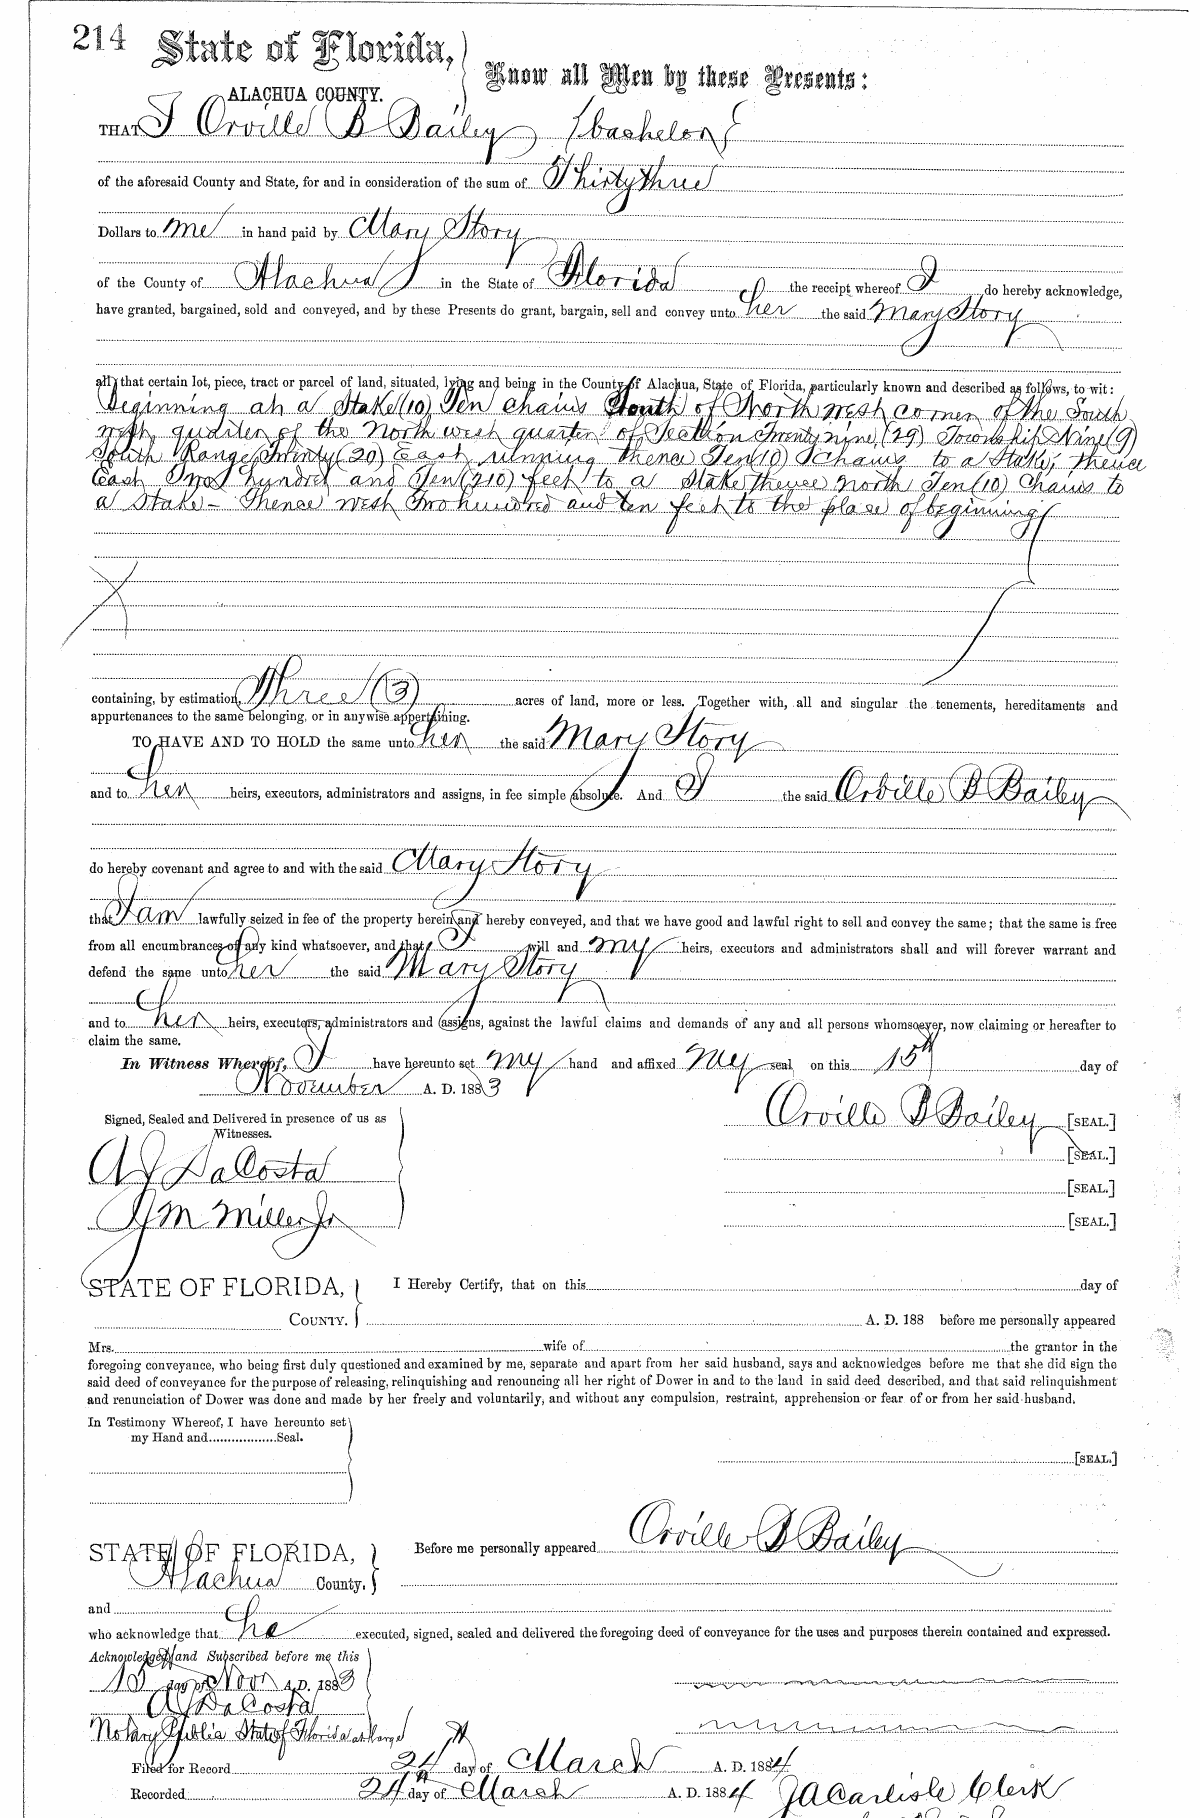 214 State of Florida, Know all Men by these Presents:
ALACHUA COUNTY.
THAT I Orville B Bailey (bachelor)
of the aforesaid County and State, for and in consideration of the sum of Thirty three
Dollars to me in hand paid by Mary Story
of the County of Alachua in the State of Florida the receipt whereof I do hereby acknowledge,
have granted, bargained, sold and conveyed, and by these Presents do grant, bargain, sell and convey unto her the said Mary Story
all that certain lot, piece, tract or parcel of land, situated, lying and being in the County of Alachua, State of Florida, particularly known and described as follows, to wit:
Beginning at a Stake (10) Ten chains South of North west corner of the South
west quarter of the North west quarter of Section Twenty nine (29) Township Nine (9)
South Range Twenty (20) East running thence Ten (10) Chains to a Stake; thence
East Two hundred and Ten (210) feet to a Stake thence north Ten (10) Chains to
a Stake - Thence west Two hundred and ten feet to the place of beginning
containing, by estimation, Three (3) acres of land, more or less. Together with, all and singular the tenements, hereditaments and
appurtenances to the same belonging, or in anywise appertaining.
TO HAVE AND TO HOLD the same unto her the said Mary Story
and to her heirs, executors, administrators and assigns, in fee simple absolute. And I the said Orville B Bailey
do hereby covenant and agree to and with the said Mary Story
that I am lawfully seized in fee of the property herein and hereby conveyed, and that we have good and lawful right to sell and convey the same; that the same is free
from all encumbrances of any kind whatsoever, and that I will and my heirs, executors and administrators shall and will forever warrant and
defend the same unto her the said Mary Story
and to her heirs, executors, administrators and assigns, against the lawful claims and demands of any and all persons whomsoever, now claiming or hereafter to
claim the same.
In Witness Whereof, I have hereunto set my hand and affixed my seal on this 15th day of
November A. D. 1883
Signed, Sealed and Delivered in presence of us as
Witnesses.
Orville B Bailey [SEAL.]
[SEAL.]
A J DaCosta
[SEAL.]
J M Miller Jr
[SEAL.]
STATE OF FLORIDA, I Hereby Certify, that on this day of
COUNTY. A. D. 188 before me personally appeared
Mrs. wife of the grantor in the
foregoing conveyance, who being first duly questioned and examined by me, separate and apart from her said husband, says and acknowledges before me that she did sign the
said deed of conveyance for the purpose of releasing, relinquishing and renouncing all her right of Dower in and to the land in said deed described, and that said relinquishment
and renunciation of Dower was done and made by her freely and voluntarily, and without any compulsion, restraint, apprehension or fear of or from her said husband.
In Testimony Whereof, I have hereunto set
my Hand and..................Seal.
[SEAL.]
STATE OF FLORIDA, Before me personally appeared Orville B Bailey
Alachua County.
and
who acknowledge that he executed, signed, sealed and delivered the foregoing deed of conveyance for the uses and purposes therein contained and expressed.
Acknowledged and Subscribed before me this
15th day of Nov A. D. 1883
A J DaCosta
Notary Public State of Florida at large
Filed for Record 24th day of March A. D. 1884
Recorded 24th day of March A. D. 1884 J A Carlisle Clerk